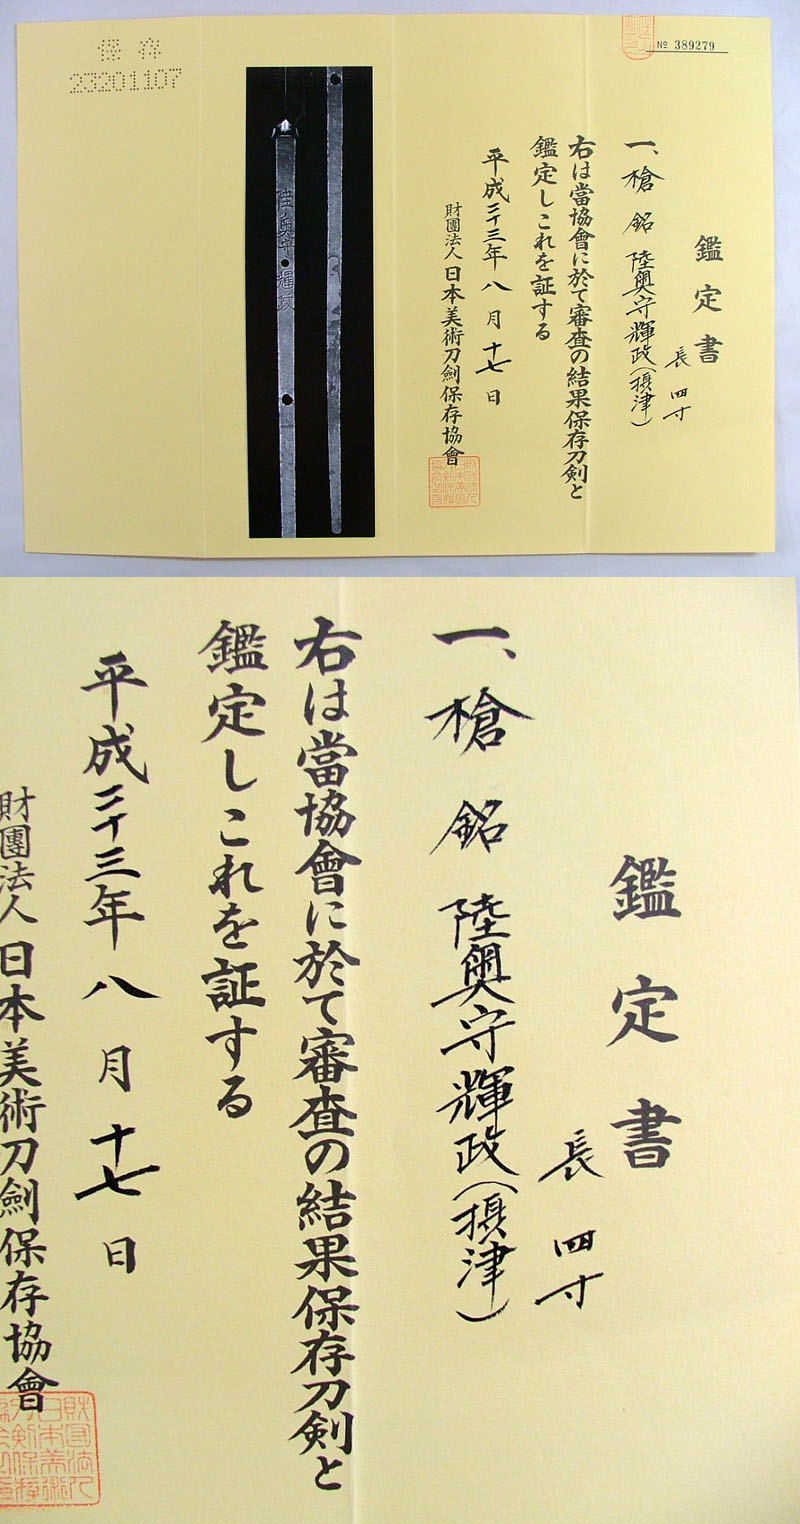 保存
23201107
№ 389279
鑑定書
長 四寸
一、槍 銘 陸奥守輝政(摂津)
右は當協會に於て審査の結果保存刀剣と
鑑定しこれを証する
平成二十三年八月十七日
財團法人日本美術刀劍保存協會
陸奥守輝政
鑑定書
長 四寸
一、槍 銘 陸奥守輝政(摂津)
右は當協會に於て審査の結果保存刀剣と
鑑定しこれを証する
平成二十三年八月十七日
財團法人日本美術刀劍保存協會